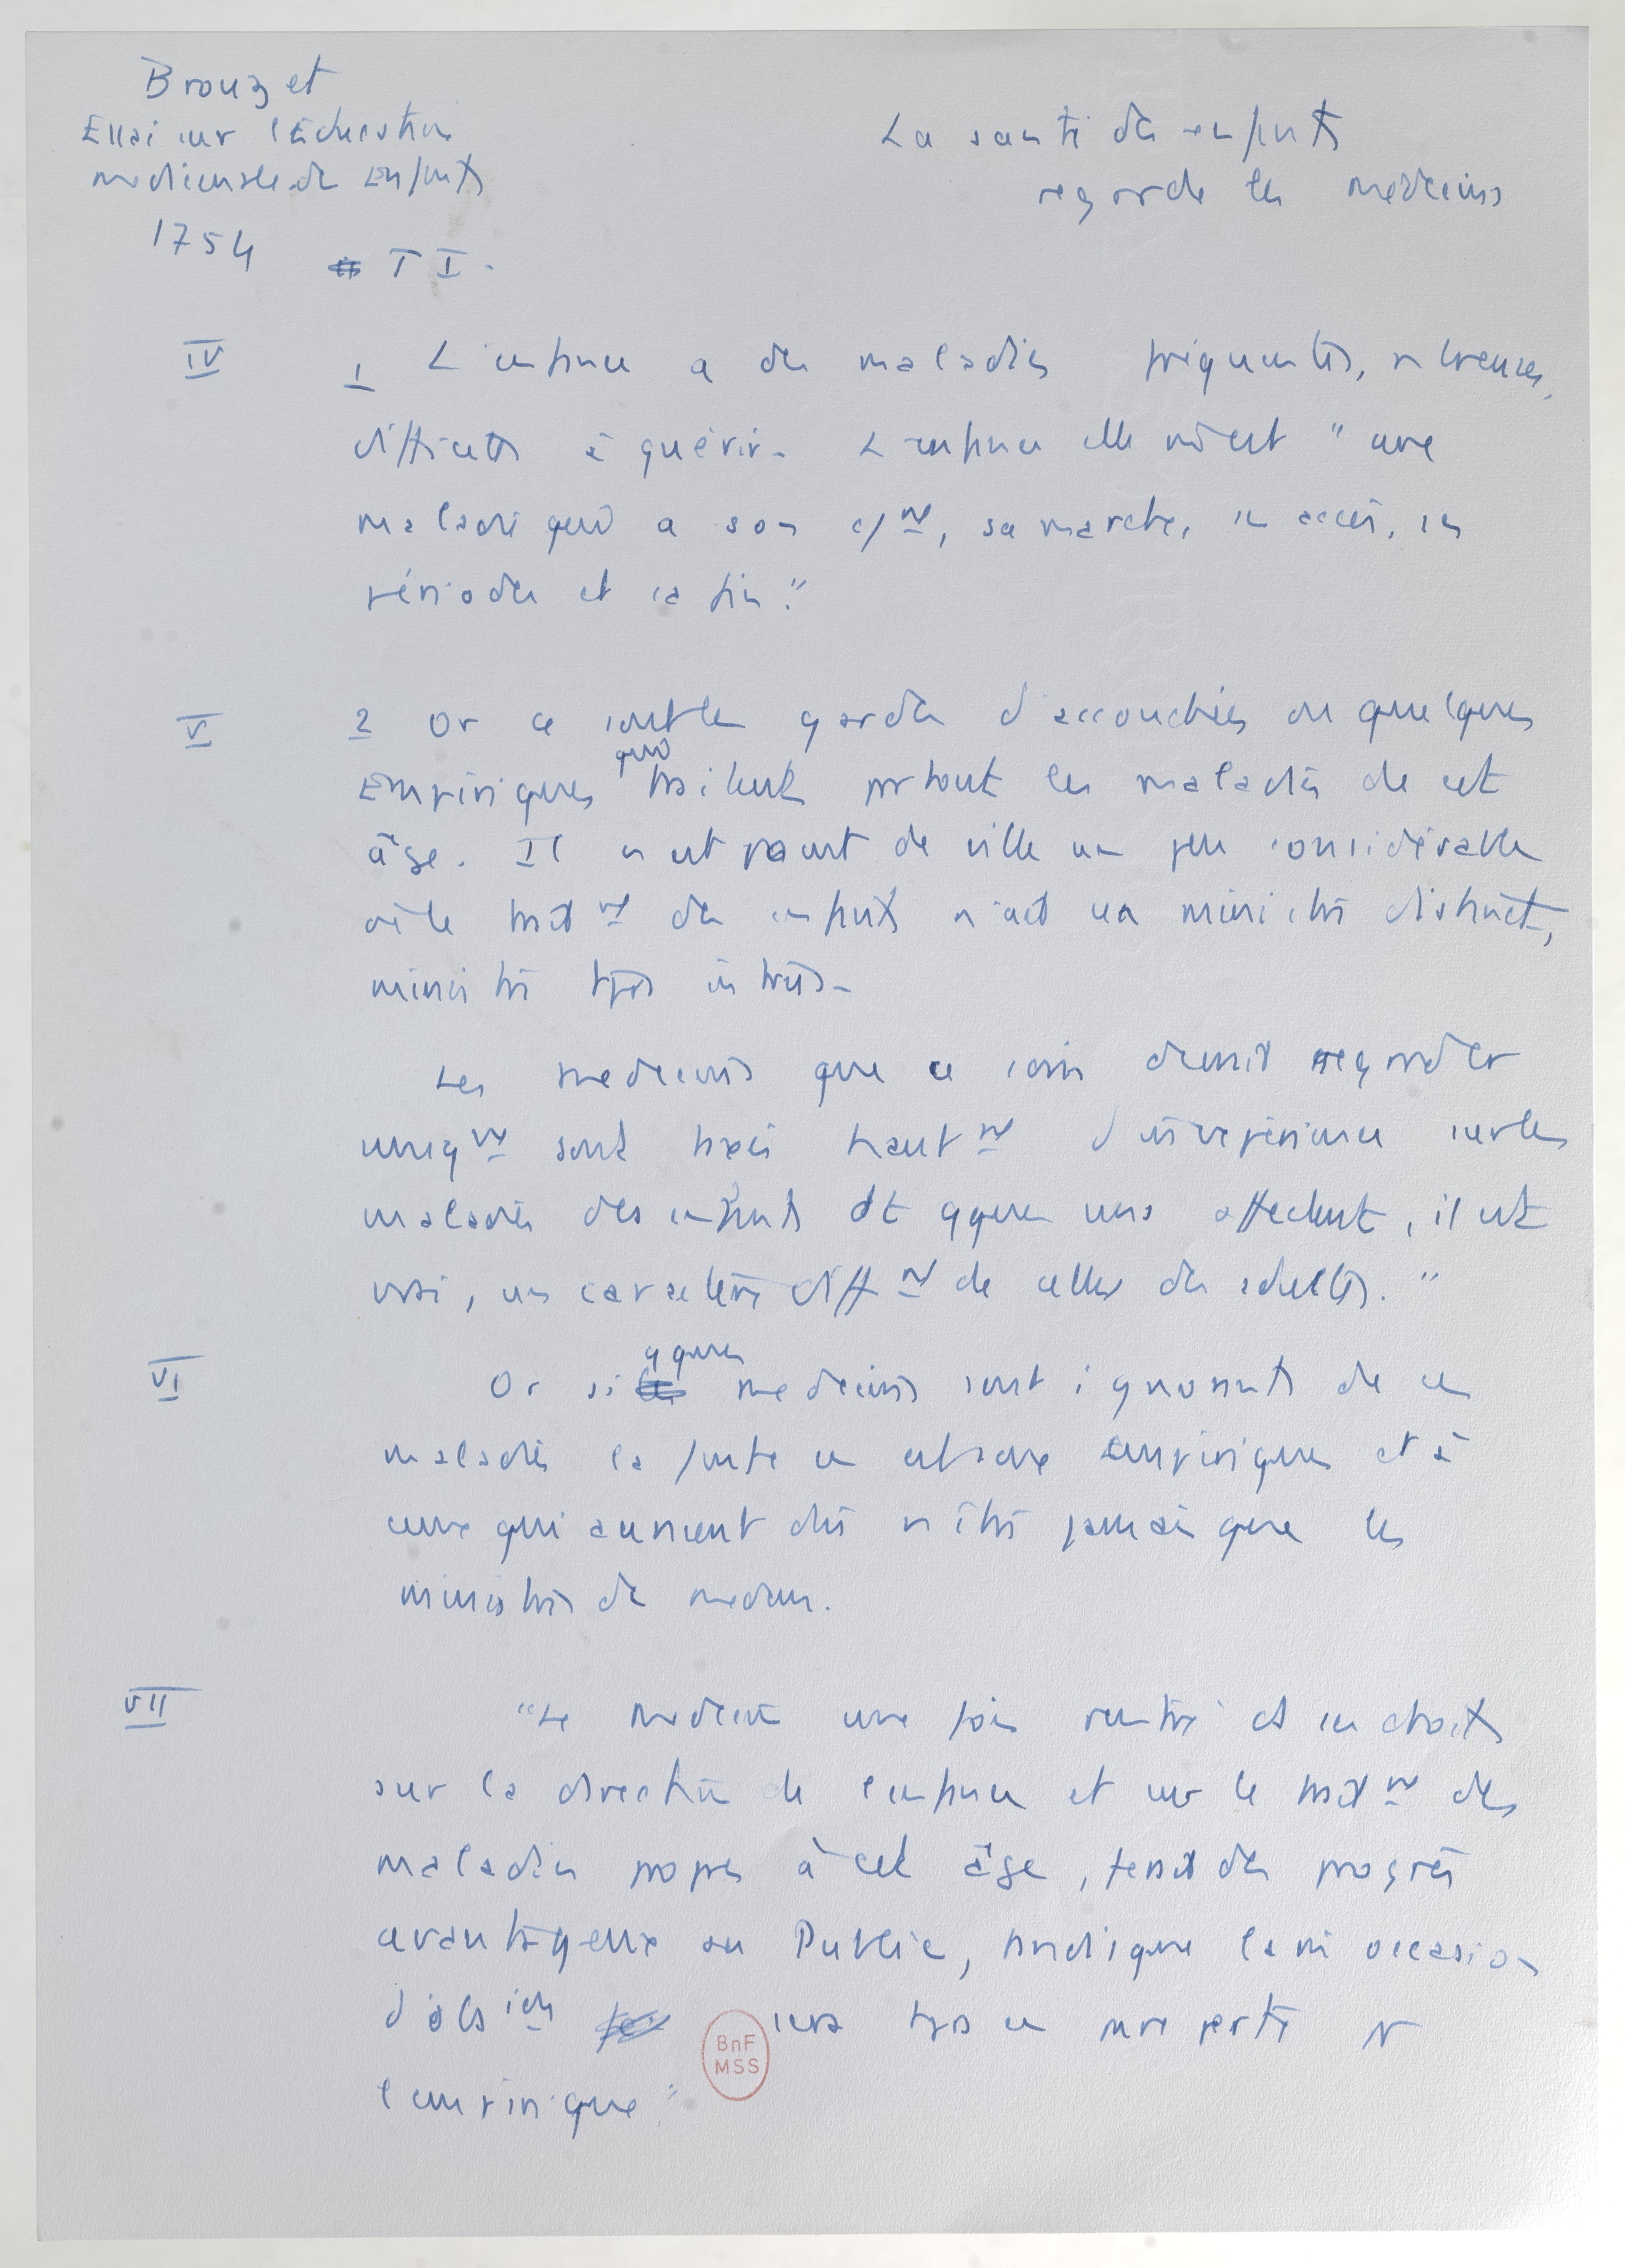 Brouzet
Essai sur l'Education
medicinale des Enfants
1754 T I.
La santé des enfants
regarde les médecins
IV 1 L'enfance a des maladies fréquentes, nbreuses,
difficiles à guérir. L'enfance elle même est " une
maladie qui a son c/nt, sa marche, ses accès, ses
périodes et sa fin."
V 2 Or ce sont les gardes d'accouchées ou quelques
Empiriques qui traitent partout les maladies de cet
âge. Il n'est point de ville un peu considérable
où le traitnt des enfants n'ait un ministre distinct,
ministre tjrs
Les medecins que ce soin devrait regarder
uniqnt sont taxés hautnt d'inexpérience sur les
maladies des enfants dt qques unes affectent, il est
vrai, un caractère difft de celles des adultes."
VI Or si qques medecins sont ignorants de ces
maladies la faute en est aux empiriques et à
ceux qui auraient dû n'être jamais que les
ministres des medecins.
VII "Le medecin une fois rentré ds ses droits
sur la direction de l'enfance et sur le traitnt des
maladies propres à cet âge, ferait des progrès
avantageux au Public, tandis que la même occasion
d'obs ions sera tjrs en pure perte pr
l'empirique"
BnF
MSS